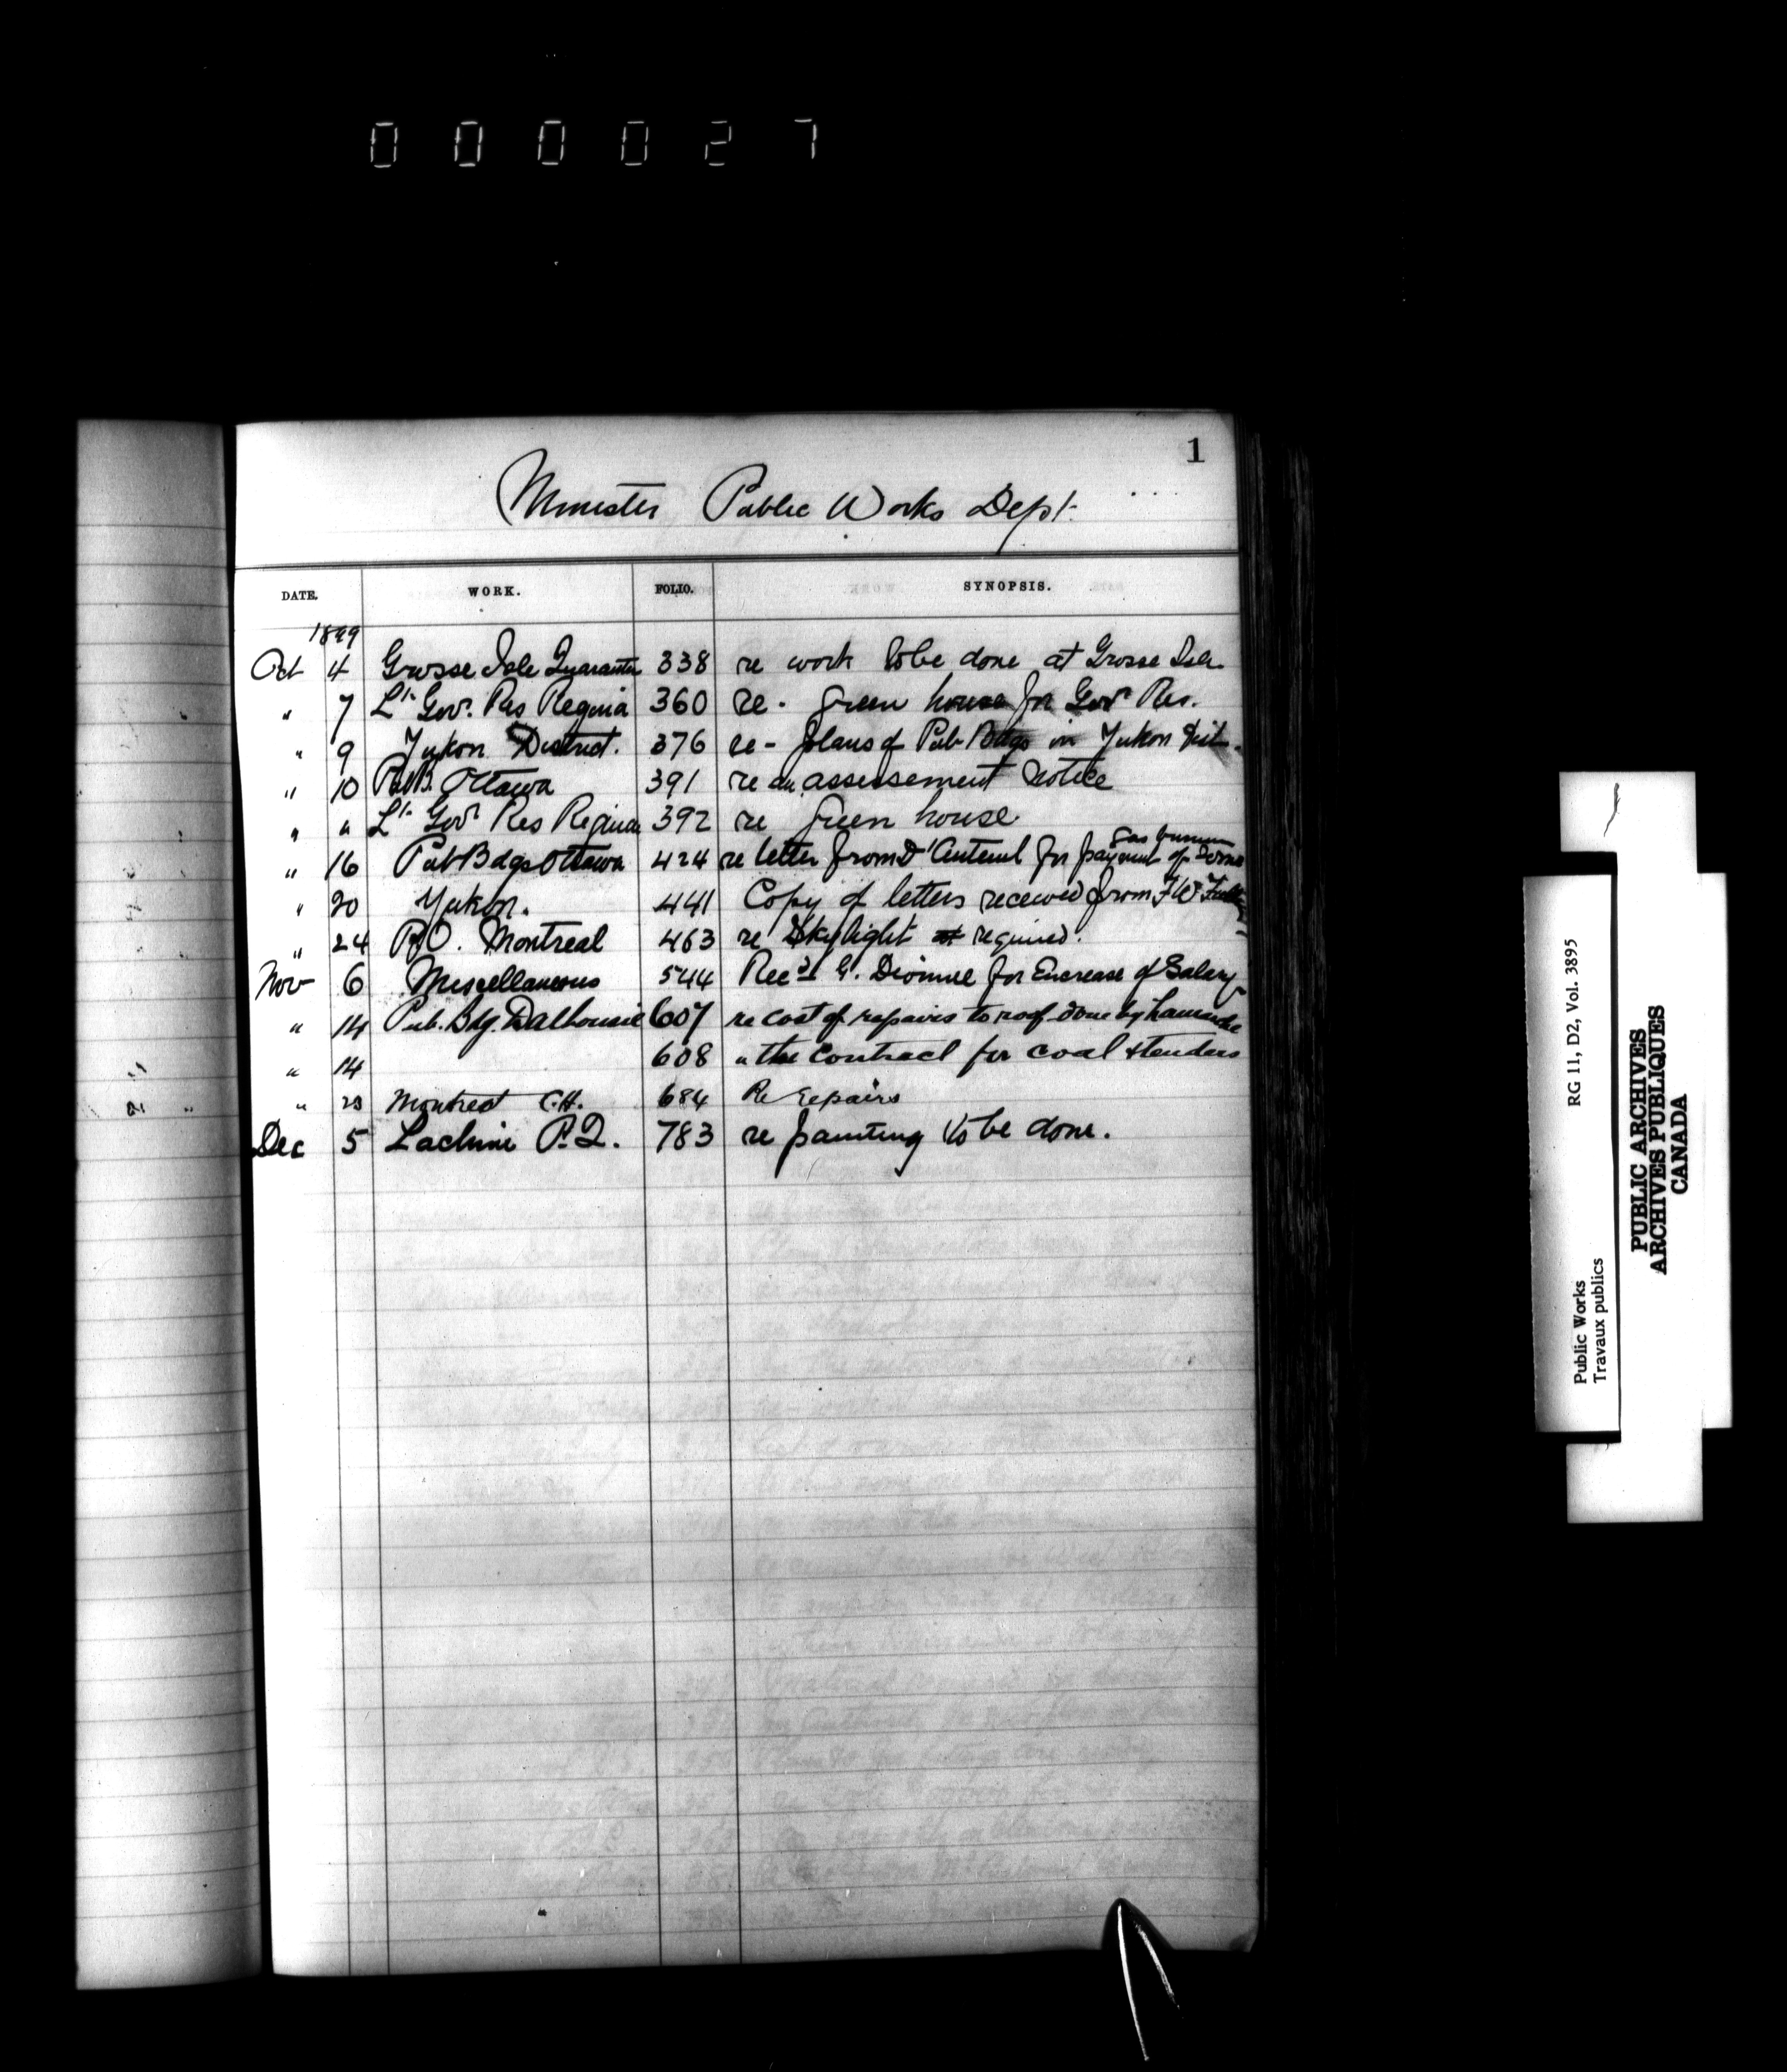 000027
1
Minister Public Works Dept.
DATE. WORK. FOLIO. SYNOPSIS.
1899
Oct 4 Grosse Isle Quarantin 338 re work to be done at Grosse Isle
" 7 Lt. Gov. Res Regina 360 re - green house for Govr Res.
" 9 Yukon District. 376 re - plans of Pub Bdgs in Yukon Dist.
" 10 Pub B. Ottawa 391 re an assessement notice
" " Lt Govr Res Regina 392 re green house
" 16 Pub Bdgs Ottawa 424 re letter from D'Auteuil for payment of gas
" 20 Yukon. 441 Copy of letters received from
" 24 P.O. Montreal 463 re Skylight required.
Nov 6 Miscellaneous 544 G. Dionne for Encrease of Salary
" 14 Pub. Bdg. Dalhousie 607 re cost of repairs to roof done by Lamarche
" 14 608 " the contract for coal & tenders
" 23 Montreal C.H. 684 Re repairs
Dec 5 Lachine P.Q. 783 re painting to be done.
Public Works
Travaux publics
RG 11, D2, Vol. 3895
PUBLIC ARCHIVES
ARCHIVES PUBLIQUES
CANADA